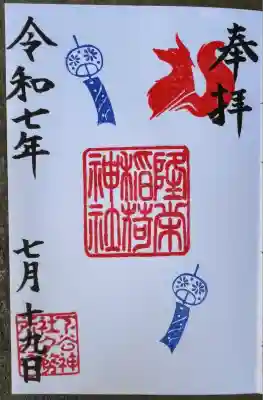 奉拝
隆栄
稲荷
神社
令和七年
七月十九日
下谷神